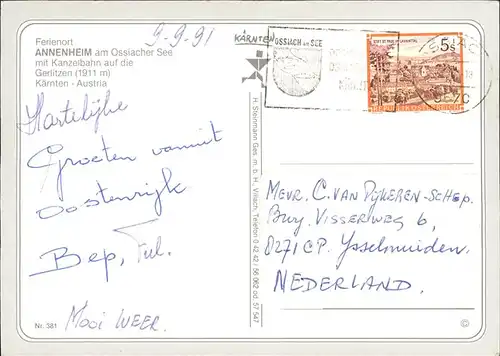 Ferienort
ANNENHEIM am Ossiacher See
mit Kanzelbahn auf die
Gerlitzen (1911 m)
Kärnten - Austria
9-9-91
KÄRNTEN
OSSIACH am SEE
STIFT ST. PAUL IM LAVANTTAL
5s
Hartelijke
Groeten vanuit
Oostenrijk
Bep,
Mooi WEER.
Nr. 381
H. Steinmann Ges. m. b. H., Villach, Telefon 0 42 42 / 56 062 od. 57 547
MEVR. C. VAN DIJKEREN-SCHEP.
Burg. VISSERWEG 6,
8271 CP. IJsselmuiden.
NEDERLAND.
©